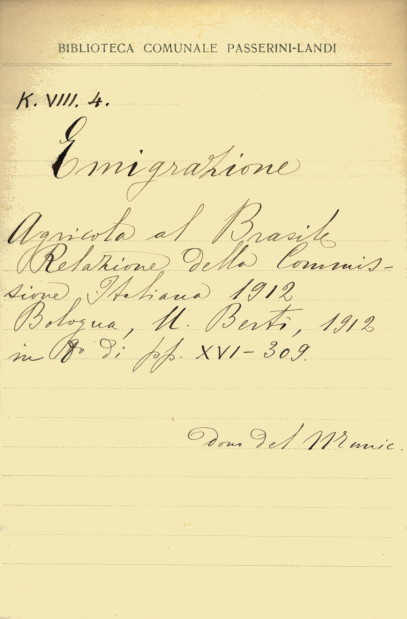 BIBLIOTECA COMUNALE PASSERINI-LANDI
K. VIII. 4.
Emigrazione
Agricola al Brasile
Relazione della Commis-
sione Italiana 1912
Bologna, U. Berti, 1912
in 8º di pp. XVI-309.
Dono del Munic.